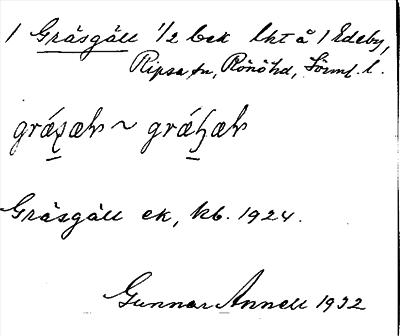 1 Gräsgäll 1/2 bek lht å 1 Edeby,
Ripsa sn, Rönöhd, Sörml. l.
Gräsgäll ek, kb. 1924.
Gunnar Annell 1932